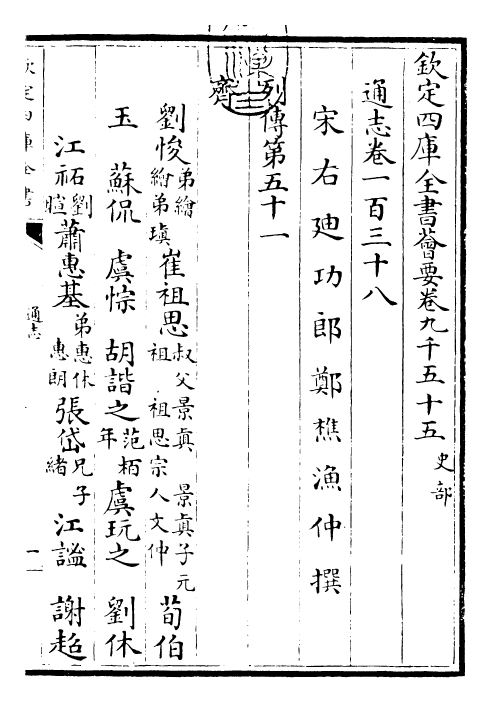 欽定四庫全書薈要卷九千五十五 史部
通志卷一百三十八
宋右迪功郎鄭樵漁仲撰
列傳第五十一
齊
劉悛弟繪 繪弟瑱 崔祖思叔父景真 景真子元祖 祖思宗人文仲 荀伯
玉 蘇侃 虞悰 胡諧之范栢年 虞玩之 劉休
江祏劉暄 蕭惠基弟惠休 惠朗 張岱兄子緒 江謐 謝超
欽定四庫全書
通志
一